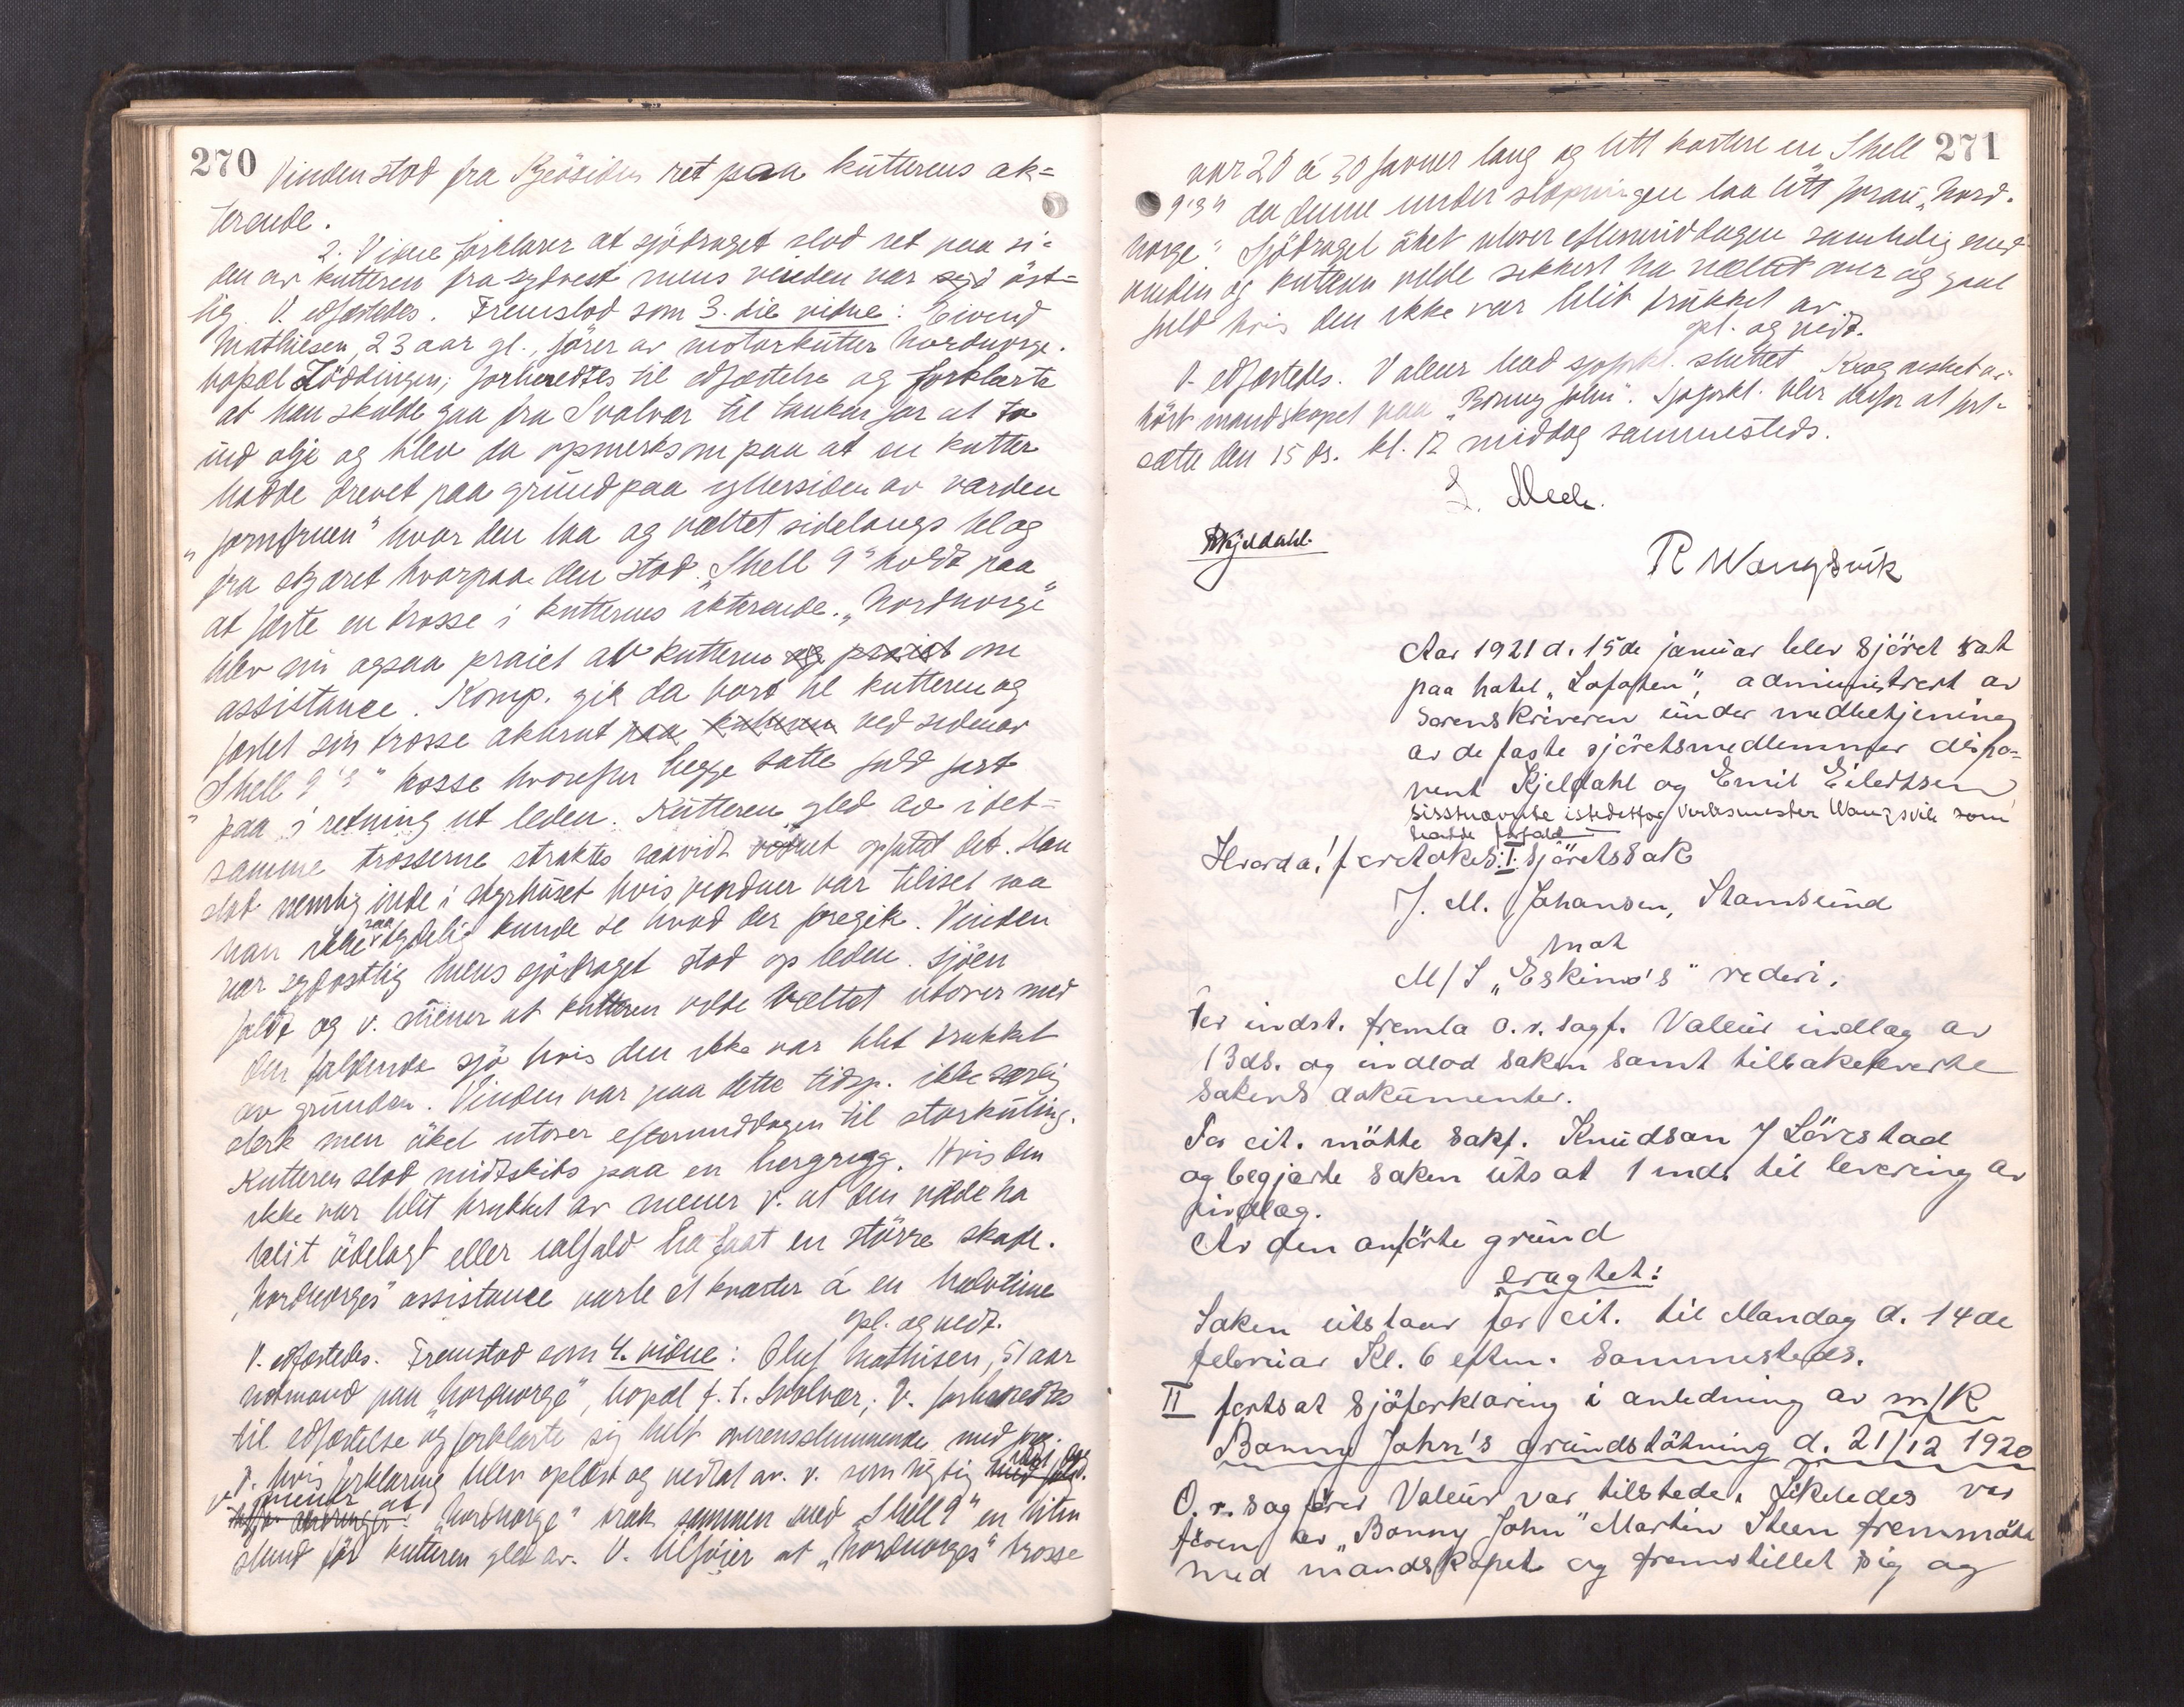 270
Vinden stod fra Kjeøsiden ret paa kutterens ak=
terende.
2. Vidne forklarer at sjödraget stod ret paa si=
den av kutteren fra sydvest mens vinden var syd öst=
lig. V. edfæstedes. Fremstod som 3. die vidne: Eivind
Mathiesen, 23 aar gl., förer av motorkutter Nordnorge.
bopæl Lödingen; forberedtes til edfæstelse og forklarte
at han skulde gaa fra Svolvær til tanken for at ta
ind olje og blev da opmerksom paa at en kutter
hadde drevet paa grund paa yttersiden av varden
"Jomfruen" hvor den laa og væltet sidelangs til og
fra skjæret hvorpaa den stod. "Shell 9" holdt paa
at fæste en trosse i kutterens akterende. "Nordnorge"
blev nu ogsaa praiet av kutteren og praiet om
assistance. Komp. gik da bort til kutteren og
fæstet sin trosse akterut paa kutteren ved siden av
"Shell 9's" trosse hvorefter begge satte fuld fart
paa i retning ut leden. Kutteren gled av i det=
samme trosserne straktes saavidt vidnet opfattet det. Han
stod nemlig inde i styrhuset hvis vinduer var tiliset saa
han ikke saa tydelig kunde se hvad der foregik. Vinden
var sydostlig mens sjödraget stod op leden. Sjöen
faldt og v. mener at kutteren vilde væltet utover med
den faldende sjö hvis den ikke var blit trukket
av grunden. Vinden var paa dette tidsp. ikke særlig
sterk men öket utover eftermiddagen til storkuling.
Kutteren stod midtskibs paa en bergrygg. Hvis den
ikke var blit trukket av mener v. at den vilde ha
blit ödelagt eller ialfald ha faat en större skade.
"Nordnorges" assistance varte et kvarter á en halvtime
opl. og vedt.
V. edfæstedes. Fremstod som 4. vidne: Oluf Mathisen, 51 aar
notmand paa "Nordnorge", bopæl f. t. Svolvær; V. forberedtes
til edfæstelse og forklarte sig helt overensstemmende med
v. hvis forklaring blev oplæst og vedtat av v. som rigtig
v. mener at "Nordnorge" trak sammen med "Shell 9" en liten
stund för kutteren gled av. V. tilföier at "Nordnorges" trosse
271
var 20 á 30 favner lang og litt kortere en "Shell
9's" da denne under slæpningen laa litt foran "Nord-
norge". Sjödraget öket utover eftermiddagen samtidig med
vinden og kutteren vilde sikkert ha væltet over og gaat
fuld hvis den ikke var blit trukket av
opl. og vedt.
V. edfæstedes. Valeur had sjøforkl. sluttet Krog önsket av-
hört mandskapet paa "Bonny John". Sjøforkl. blir derfor at fort-
sætte den 15 ds. kl. 12 middag sammesteds.
Kjeldahl
R Wangsvik
Aar 1921 d. 15de januar blev sjöret sat
paa hotel "Lofoten", administrert av
Sorenskriveren under medbetjening
av de faste sjöretsmedlemmer dispo-
nent Kjeldahl og Emil Eilertsen
sisstnævnte istedetfor Verksmester Wangsvik som
hadde forfald
Hvorda! foretokes: I. Sjöretssak
J. M. Johansen, Stamsund
mot
M/S "Eskimo's" rederi.
For indst. fremla o. r. sagf. Valeur indlæg av
13 ds. og indlod saken samt tilbakeleverte
sakens dokumenter.
For cit. mötte sakf. Knudsen f Lövstad
og begjærte saken utsat 1 md. til levering av
indlæg.
Av den anförte grund
eragtet:
Saken utstaar for cit. til Mandag d. 14de
februar Kl. 6 eftm. sammesteds.
II fortsat sjöforklaring i anledning av m/K
Bonny John's grundstötning d. 21/12 1920
O. r. sagförer Valeur var tilstede. Likeledes var
föreren av "Bonny John" Martin Steen fremmött
med mandskapet og fremstillet sig og